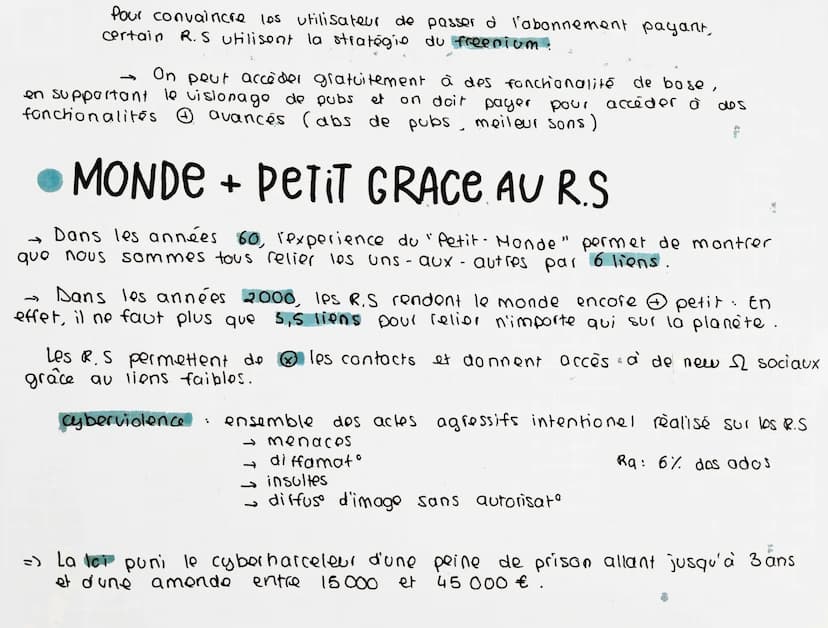 Pour convaincre les utilisateur de passer à l'abonnement payant,
certain R.S utilisent la stratégie du freenium.
→ On peut accéder gratuitement à des fonctionalité de base,
en supportant le visionage de pubs et on doit payer pour accéder à des
fonctionalités ⊕ avancés (abs de pubs, meileur sons)
MONDE + PETIT GRACE AU R.S
→ Dans les années 60, l'experience du "Petit-Monde" permet de montrer
que nous sommes tous relier les uns-aux-autres par 6 liens.
→ Dans les années 2000, les R.S rendent le monde encore ⊕ petit. En
effet, il ne faut plus que 5,5 liens pour relier n'importe qui sur la planète.
Les R.S permettent de ⊗ les contacts et donnent accès à de new Ω sociaux
grâce au liens faibles.
cyberviolence : ensemble des actes agressifs intentionel réalisé sur les R.S
→ menaces
→ diffamat° Rq: 6% des ados
→ insultes
→ diffus° d'image sans autorisat°
=> La loi puni le cyberharceleur d'une peine de prison allant jusqu'à 3 ans
et d'une amende entre 15 000 et 45 000 €.